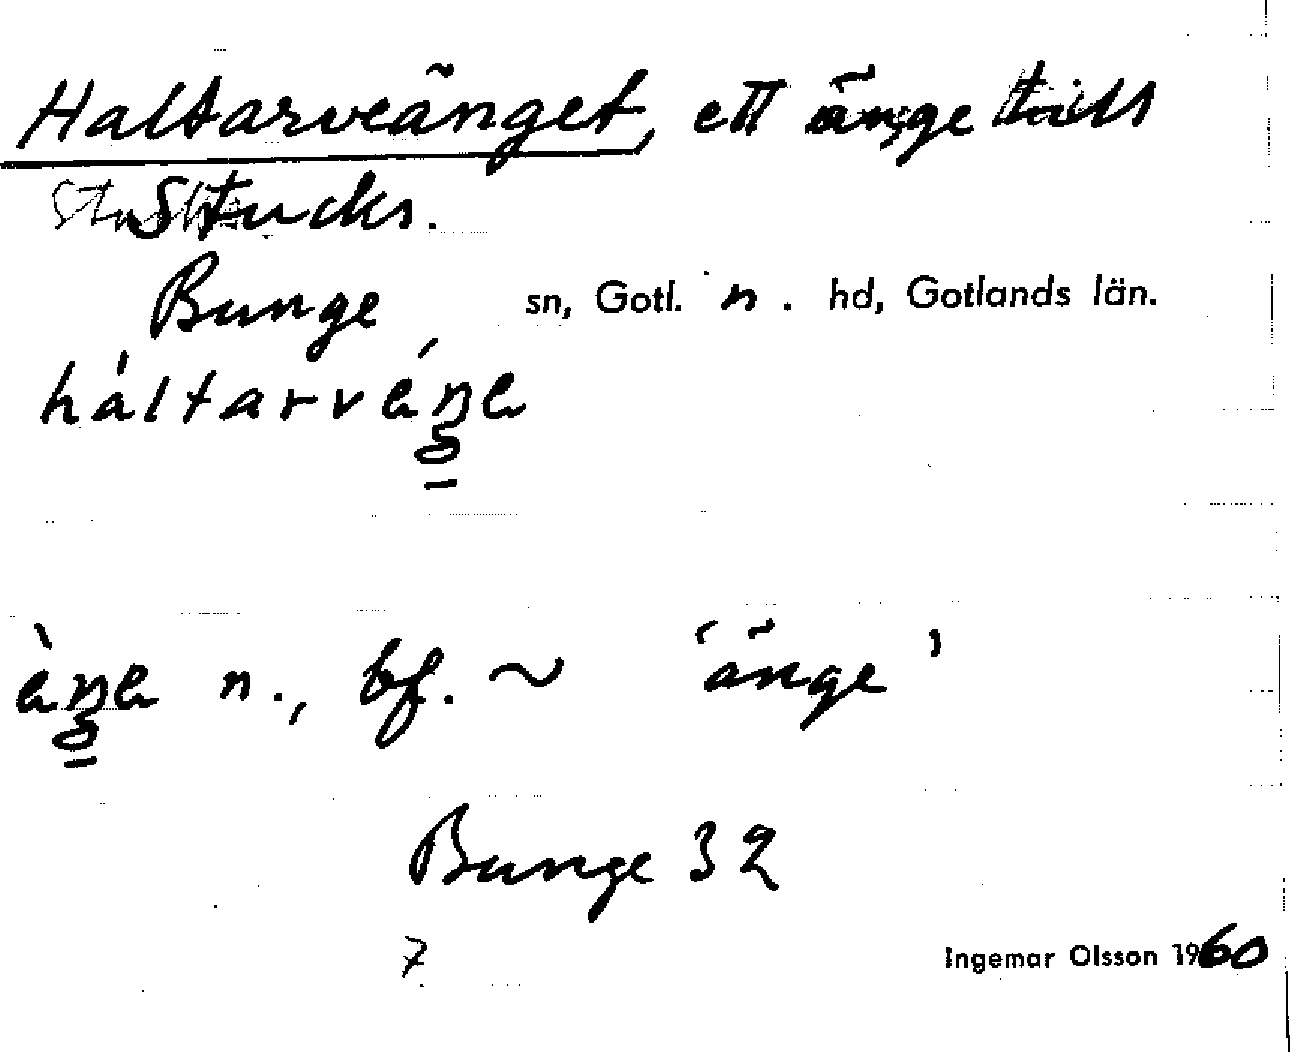 Haltarveänget, ett änge till
Stucks.
Bunge sn, Gotl. n. hd, Gotlands län.
háltarvéŋe
èŋe n., bf. ~ 'änge'
Bunge 32
7
Ingemar Olsson 1960